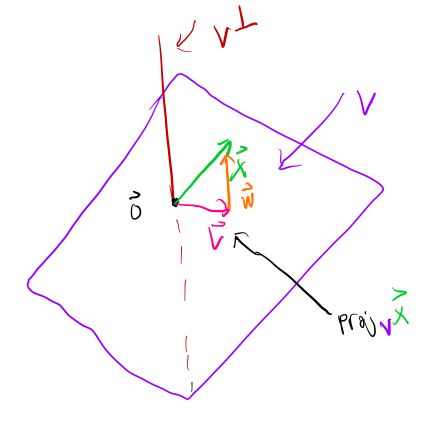 V⊥
V
x⃗
w⃗
0⃗
v⃗
proj V x⃗